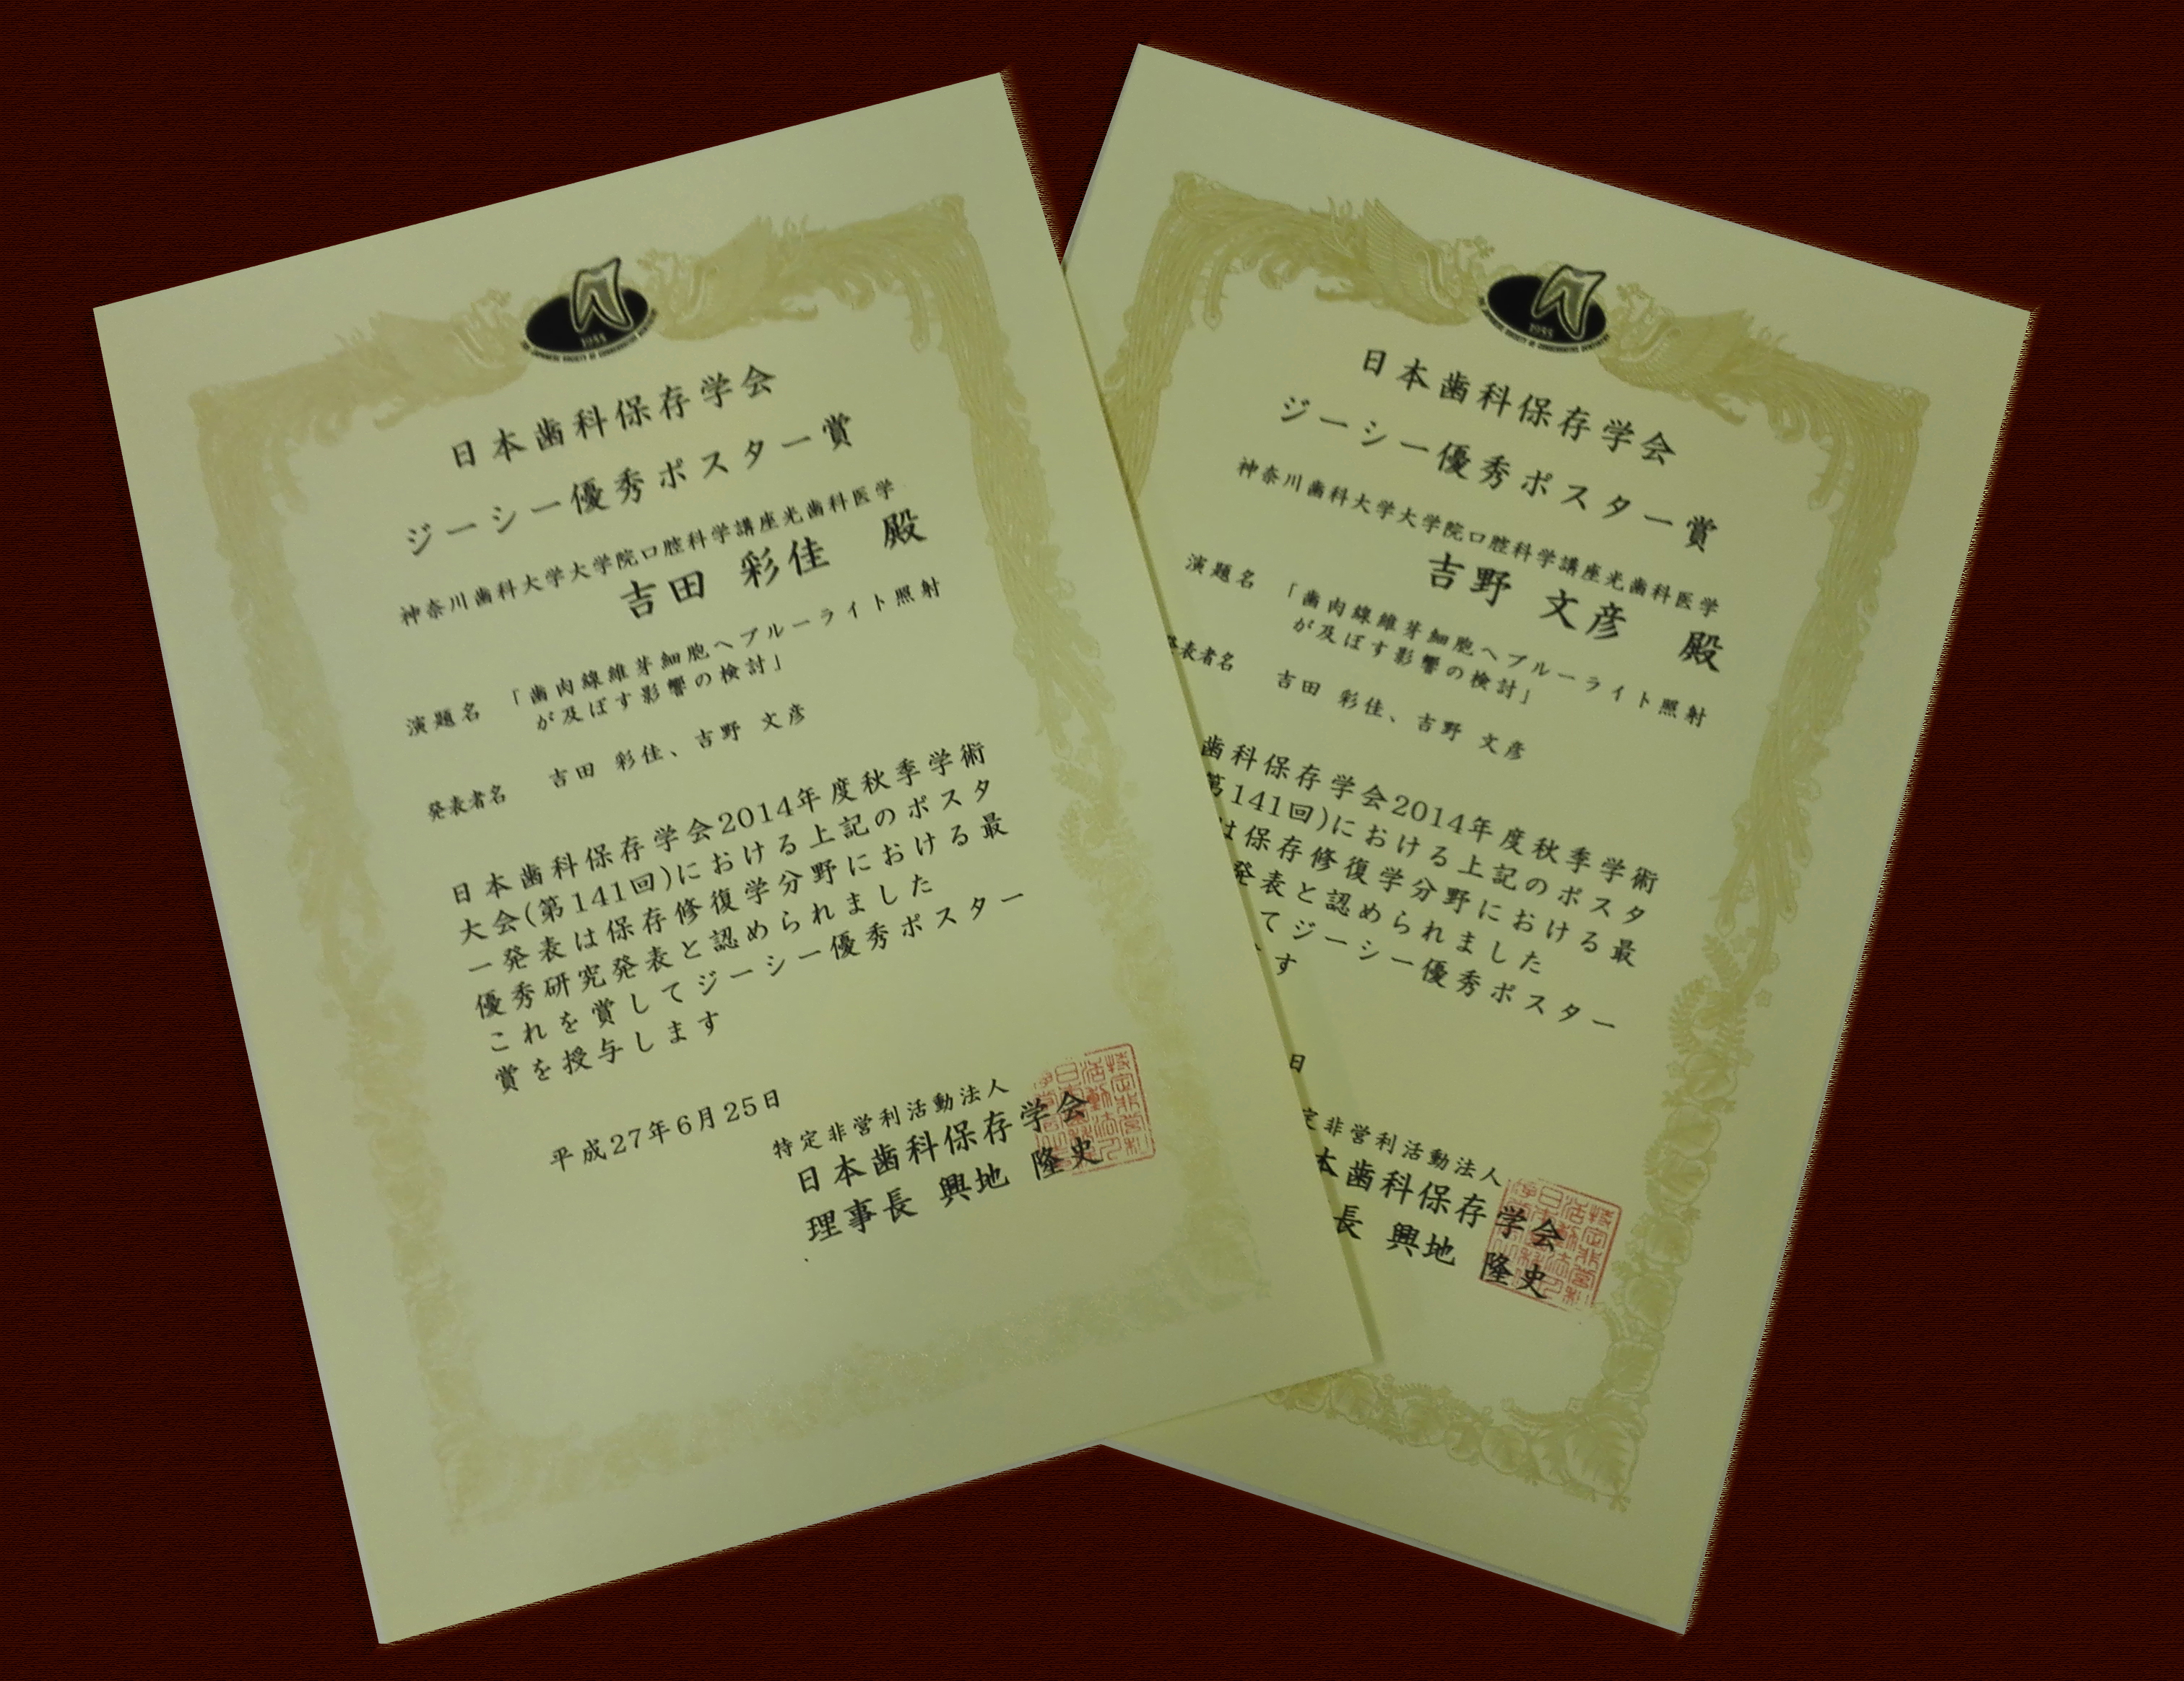 1955
THE JAPANESE SOCIETY OF CONSERVATIVE DENTISTRY
日本歯科保存学会
ジーシー優秀ポスター賞
神奈川歯科大学大学院口腔科学講座光歯科医学
吉田 彩佳 殿
演題名 「歯肉線維芽細胞へブルーライト照射
が及ぼす影響の検討」
発表者名 吉田 彩佳、吉野 文彦
日本歯科保存学会2014年度秋季学術
大会(第141回)における上記のポスタ
ー発表は保存修復学分野における最
優秀研究発表と認められました
これを賞してジーシー優秀ポスター
賞を授与します
平成27年6月25日
特定非営利活動法人
日本歯科保存学会
理事長 興地 隆史
1955
THE JAPANESE SOCIETY OF CONSERVATIVE DENTISTRY
日本歯科保存学会
ジーシー優秀ポスター賞
神奈川歯科大学大学院口腔科学講座光歯科医学
吉野 文彦 殿
演題名 「歯肉線維芽細胞へブルーライト照射
が及ぼす影響の検討」
表者名 吉田 彩佳、吉野 文彦
歯科保存学会2014年度秋季学術
第141回)における上記のポスタ
は保存修復学分野における最
発表と認められました
てジーシー優秀ポスター
す
日
定非営利活動法人
本歯科保存学会
長 興地 隆史